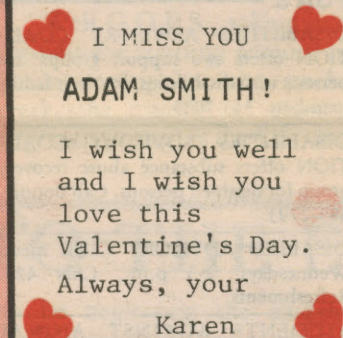 I MISS YOU
ADAM SMITH!
I wish you well
and I wish you
love this
Valentine's Day.
Always, your
Karen